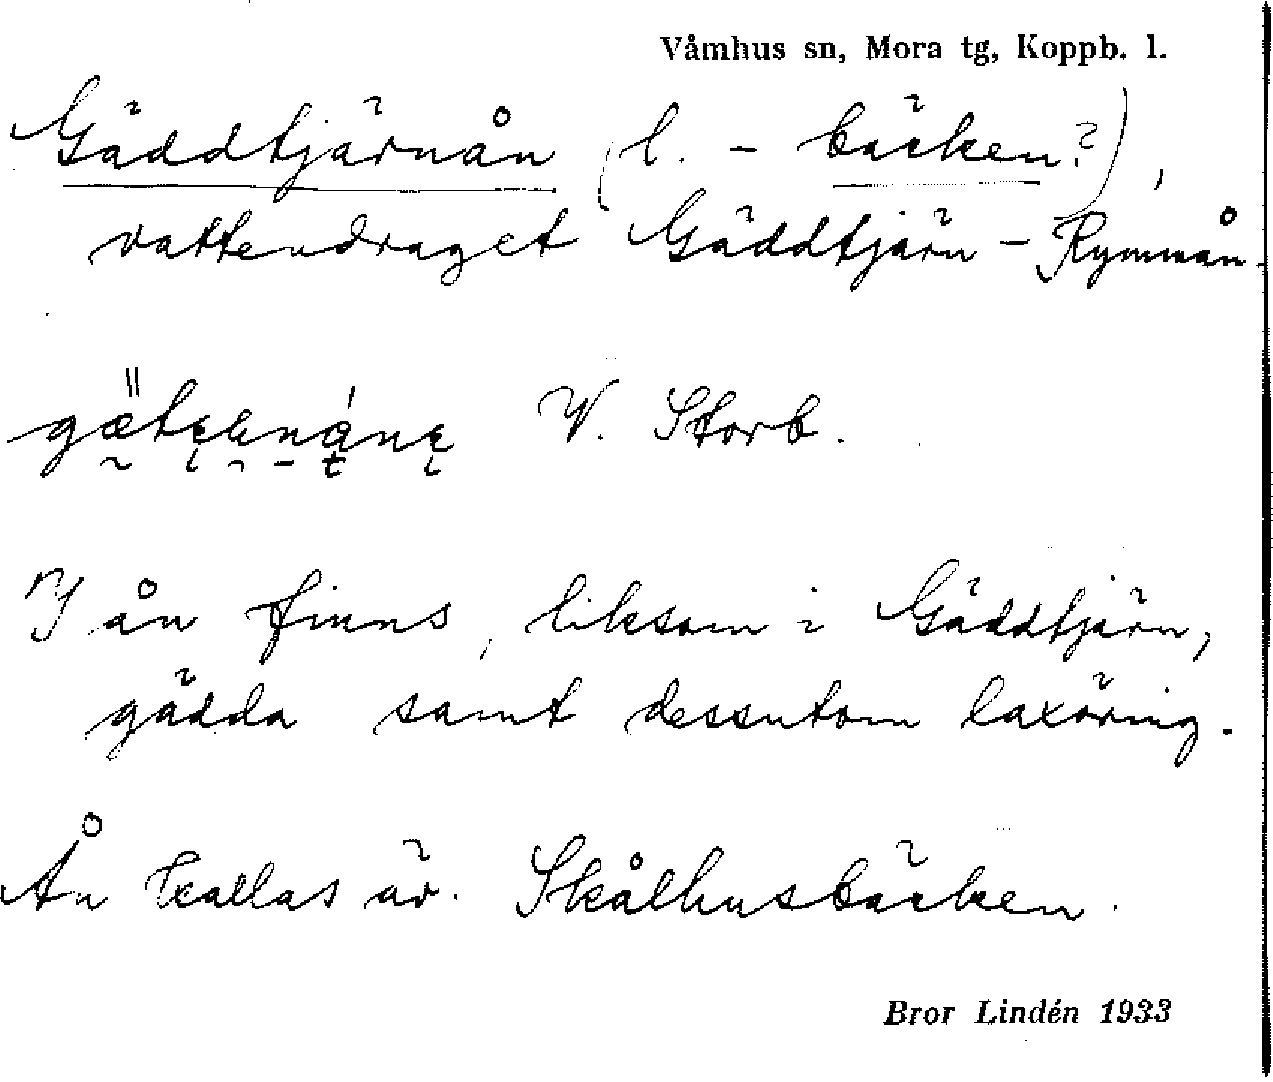 Våmhus sn, Mora tg, Koppb. l.
Gäddtjärnån (l. - bäcken?),
vattendraget Gäddtjärn - Rymmån.
V. Storb.
I ån finns, liksom i Gäddtjärn,
gädda samt dessutom laxöring.
Ån kallas äv. Skålhusbäcken.
Bror Lindén 1933